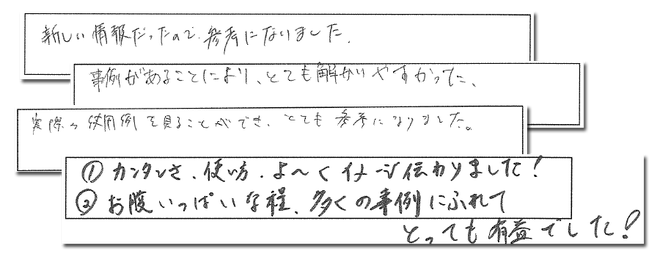 新しい情報だったので、参考になりました。
事例があることにより、とても解かりやすかった、
実際の使用例を見ることができ、とても参考になりました。
① カンタンさ、使い方、よ～くイメージ伝わりました！
② お腹いっぱいな程、多くの事例にふれて
とっても有益でした！